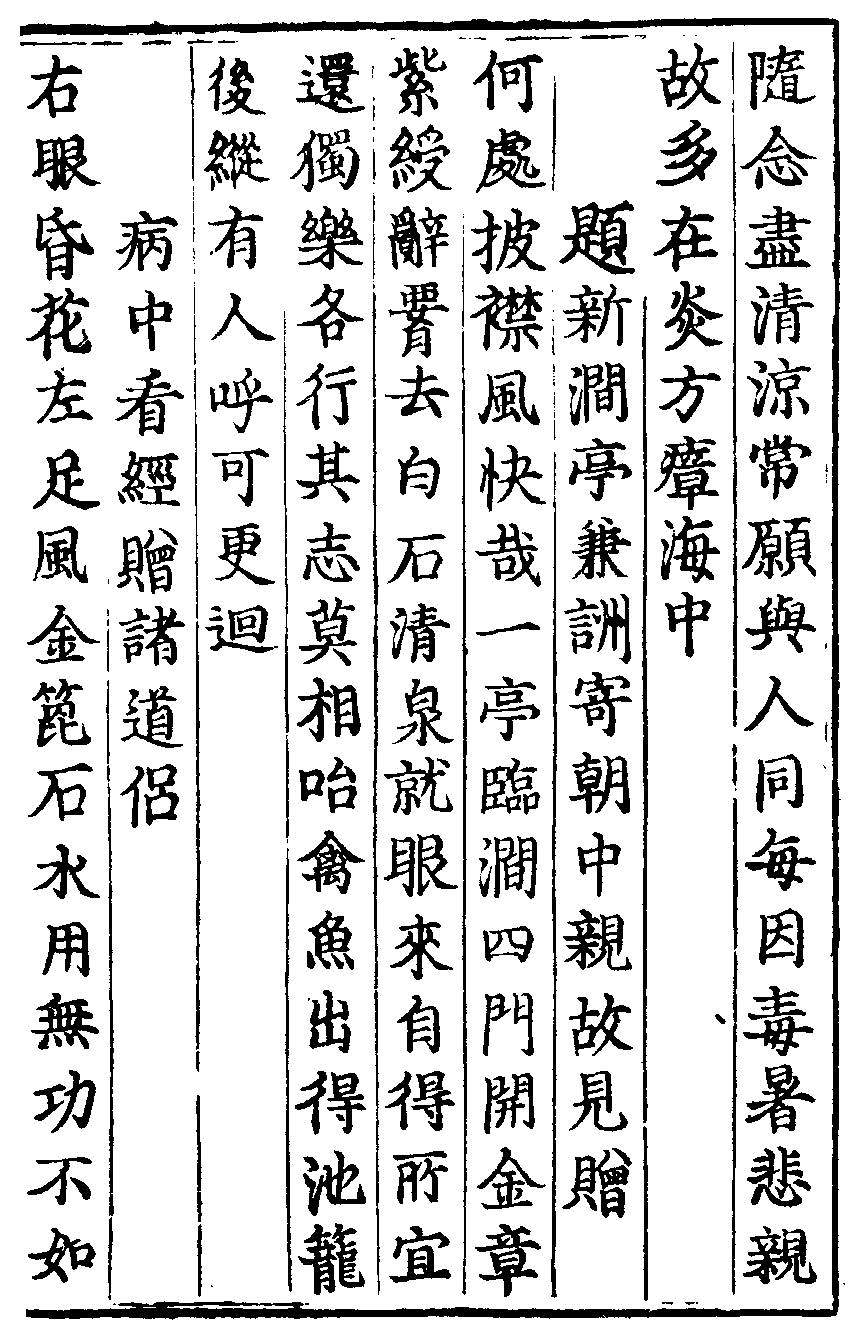 隨念盡清涼常願與人同每因毒暑悲親
故多在炎方瘴海中
題新澗亭兼詶寄朝中親故見贈
何處披襟風快哉一亭臨澗四門開金章
紫綬辭䙅去白石清泉就眼來自得所宜
還獨樂各行其志莫相咍禽魚出得池籠
後縱有人呼可更迴
病中看經贈諸道侶
右眼昏花左足風金篦石水用無功不如